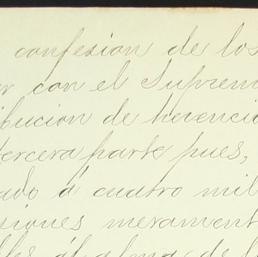 confesion de los
con el Suprem
ibucion de herenci
tercera parte pues,
ado á cuatro mil
siones merament
al alma de l